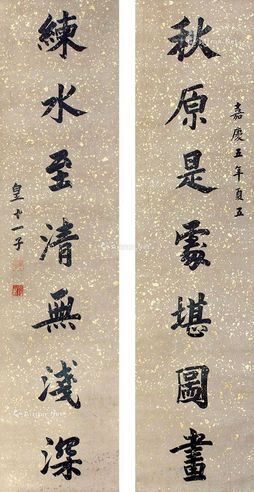 秋原是處堪圖畫
嘉慶五年夏五
練水至清無淺深
皇十一子